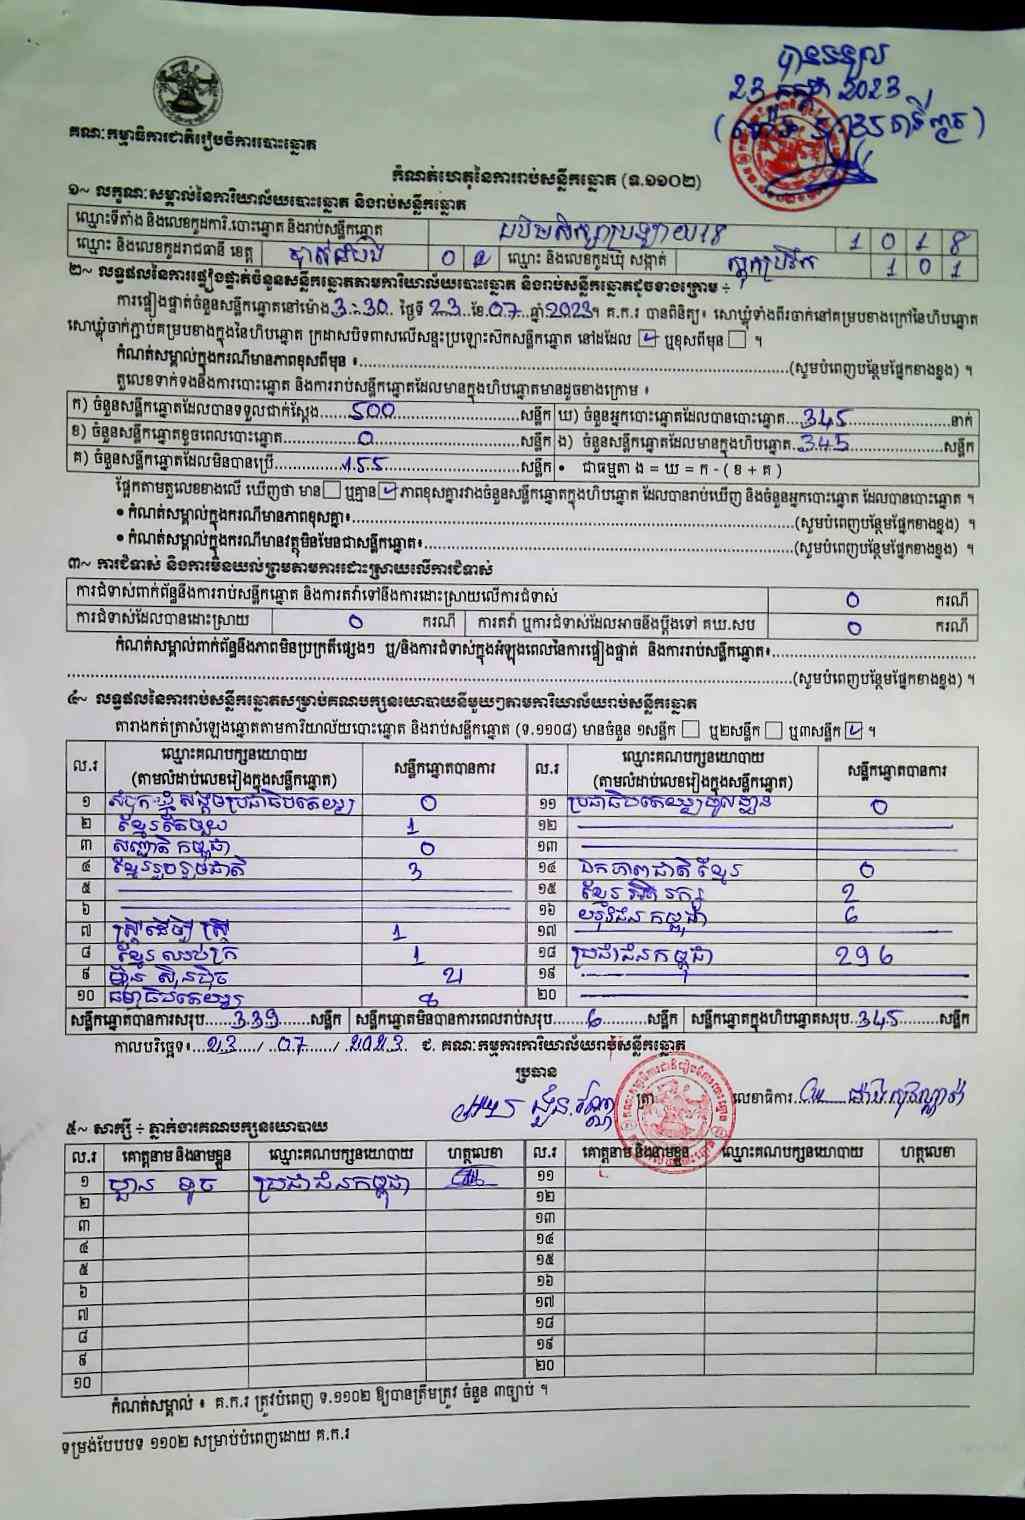 បានទទួល
23 កក្កដា 2023
គណៈកម្មាធិការជាតិរៀបចំការបោះឆ្នោត
កំណត់ហេតុនៃការរាប់សន្លឹកឆ្នោត (ទ.១១០២)
១~ លក្ខណៈសម្គាល់នៃការិយាល័យបោះឆ្នោត និងរាប់សន្លឹកឆ្នោត
ឈ្មោះទីតាំង និងលេខកូដការិ.បោះឆ្នោត និងរាប់សន្លឹកឆ្នោត 1 0 1 8
ឈ្មោះ និងលេខកូដរាជធានី ខេត្ត បាត់ដំបង 0 2 ឈ្មោះ និងលេខកូដឃុំ សង្កាត់ 1 0 1
២~ លទ្ធផលនៃការផ្ទៀងផ្ទាត់ចំនួនសន្លឹកឆ្នោតតាមការិយាល័យបោះឆ្នោត និងរាប់សន្លឹកឆ្នោតដូចខាងក្រោម ÷
ការផ្ទៀងផ្ទាត់ចំនួនសន្លឹកឆ្នោតនៅម៉ោង 3:30 ថ្ងៃទី 23 ខែ 07 ឆ្នាំ 2023។ គ.ក.រ បានពិនិត្យ៖ សោឃ្លុំទាំងពីរចាក់នៅគម្របខាងក្រៅនៃហិបឆ្នោត
សោឃ្លុំចាក់ភ្ជាប់គម្របខាងក្នុងនៃហិបឆ្នោត ក្រដាសបិទពាសលើសន្ទះប្រឡោះស៊កសន្លឹកឆ្នោត នៅដដែល ☑ ឬខុសពីមុន ☐ ។
កំណត់សម្គាល់ក្នុងករណីមានភាពខុសពីមុន ៖ (សូមបំពេញបន្ថែមផ្នែកខាងខ្នង) ។
តួលេខទាក់ទងនឹងការបោះឆ្នោត និងការរាប់សន្លឹកឆ្នោតដែលមានក្នុងហិបឆ្នោតមានដូចខាងក្រោម ៖
ក) ចំនួនសន្លឹកឆ្នោតដែលបានទទួលជាក់ស្តែង 500 សន្លឹក ឃ) ចំនួនអ្នកបោះឆ្នោតដែលបានបោះឆ្នោត 345 នាក់
ខ) ចំនួនសន្លឹកឆ្នោតខូចពេលបោះឆ្នោត 0 សន្លឹក ង) ចំនួនសន្លឹកឆ្នោតដែលមានក្នុងហិបឆ្នោត 345 សន្លឹក
គ) ចំនួនសន្លឹកឆ្នោតដែលមិនបានប្រើ 155 សន្លឹក • ជាធម្មតា ង = ឃ = ក - ( ខ + គ )
ផ្អែកតាមតួលេខខាងលើ ឃើញថា មាន ☐ ឬគ្មាន ☑ ភាពខុសគ្នារវាងចំនួនសន្លឹកឆ្នោតក្នុងហិបឆ្នោត ដែលបានរាប់ឃើញ និងចំនួនអ្នកបោះឆ្នោត ដែលបានបោះឆ្នោត ។
• កំណត់សម្គាល់ក្នុងករណីមានភាពខុសគ្នា៖ (សូមបំពេញបន្ថែមផ្នែកខាងខ្នង) ។
• កំណត់សម្គាល់ក្នុងករណីមានវត្ថុមិនមែនជាសន្លឹកឆ្នោត៖ (សូមបំពេញបន្ថែមផ្នែកខាងខ្នង) ។
៣~ ការជំទាស់ និងការមិនយល់ព្រមតាមការដោះស្រាយលើការជំទាស់
ការជំទាស់ពាក់ព័ន្ធនឹងការរាប់សន្លឹកឆ្នោត និងការតវ៉ាទៅនឹងការដោះស្រាយលើការជំទាស់ 0 ករណី
ការជំទាស់ដែលបានដោះស្រាយ 0 ករណី ការតវ៉ា ឬការជំទាស់ដែលអាចនឹងប្តឹងទៅ គឃ.សប 0 ករណី
កំណត់សម្គាល់ពាក់ព័ន្ធនឹងភាពមិនប្រក្រតីផ្សេងៗ ឬ/និងការជំទាស់ក្នុងអំឡុងពេលនៃការផ្ទៀងផ្ទាត់ និងការរាប់សន្លឹកឆ្នោត៖
(សូមបំពេញបន្ថែមផ្នែកខាងខ្នង) ។
៤~ លទ្ធផលនៃការរាប់សន្លឹកឆ្នោតសម្រាប់គណបក្សនយោបាយនីមួយៗតាមការិយាល័យរាប់សន្លឹកឆ្នោត
តារាងកត់ត្រាសំឡេងឆ្នោតតាមការិយាល័យបោះឆ្នោត និងរាប់សន្លឹកឆ្នោត (ទ.១១០៨) មានចំនួន ១សន្លឹក ☐ ឬ២សន្លឹក ☐ ឬ៣សន្លឹក ☑ ។
ល.រ ឈ្មោះគណបក្សនយោបាយ (តាមលំដាប់លេខរៀងក្នុងសន្លឹកឆ្នោត) សន្លឹកឆ្នោតបានការ ល.រ ឈ្មោះគណបក្សនយោបាយ (តាមលំដាប់លេខរៀងក្នុងសន្លឹកឆ្នោត) សន្លឹកឆ្នោតបានការ
១ សំបុកឃ្មុំសង្គមប្រជាធិបតេយ្យ 0 ១១ ប្រជាធិបតេយ្យមូលដ្ឋាន 0
២ ខ្មែរតែមួយ 1 ១២
៣ សញ្ជាតិកម្ពុជា 0 ១៣
៤ ខ្មែររួបរួមជាតិ 3 ១៤ ឯកភាពជាតិខ្មែរ 0
៥ ១៥ ខ្មែរអភិរក្ស 2
៦ ១៦ យុវជនកម្ពុជា 6
៧ ស្ត្រីដើម្បីស្ត្រី 1 ១៧
៨ ខ្មែរឈប់ក្រ 1 ១៨ ប្រជាជនកម្ពុជា 296
៩ ហ៊្វុនស៊ិនប៉ិច 21 ១៩
១០ ធម្មាធិបតេយ្យ 8 ២០
សន្លឹកឆ្នោតបានការសរុប 339 សន្លឹក សន្លឹកឆ្នោតមិនបានការពេលរាប់សរុប 6 សន្លឹក សន្លឹកឆ្នោតក្នុងហិបឆ្នោតសរុប 345 សន្លឹក
កាលបរិច្ឆេទ៖ 23 / 07 / 2023 ជ. គណៈកម្មការការិយាល័យរាប់សន្លឹកឆ្នោត
ប្រធាន
ត្រា លេខាធិការ
៥~ សាក្សី ÷ ភ្នាក់ងារគណបក្សនយោបាយ
ល.រ គោត្តនាម និងនាមខ្លួន ឈ្មោះគណបក្សនយោបាយ ហត្ថលេខា ល.រ គោត្តនាម និងនាមខ្លួន ឈ្មោះគណបក្សនយោបាយ ហត្ថលេខា
១ ប្រជាជនកម្ពុជា ១១
២ ១២
៣ ១៣
៤ ១៤
៥ ១៥
៦ ១៦
៧ ១៧
៨ ១៨
៩ ១៩
១០ ២០
កំណត់សម្គាល់ ៖ គ.ក.រ ត្រូវបំពេញ ទ.១១០២ ឱ្យបានត្រឹមត្រូវ ចំនួន ៣ច្បាប់ ។
ទម្រង់បែបបទ ១១០២ សម្រាប់បំពេញដោយ គ.ក.រ